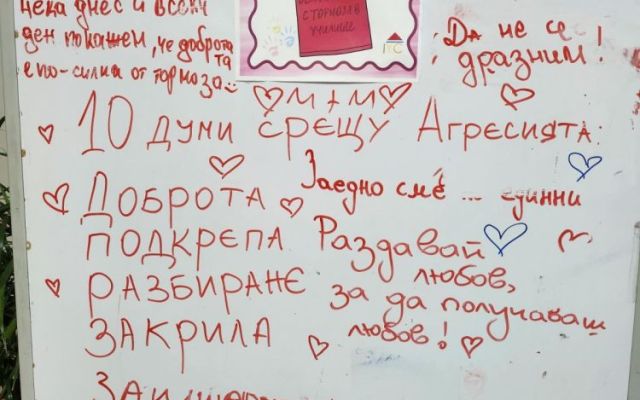 нека днес и всеки
ден покажем, че доброта
та
е по-силна от тормоза
С ТОРМОЗА В
УЧИЛИЩЕ
ITC
Да не се
дразним!
М + М
10 ДУМИ СРЕЩУ АГРЕСИЯТА:
ДОБРОТА
Заедно сме ... единни
ПОДКРЕПА
Раздавай
любов,
РАЗБИРАНЕ
за да получаваш
ЗАКРИЛА
любов!